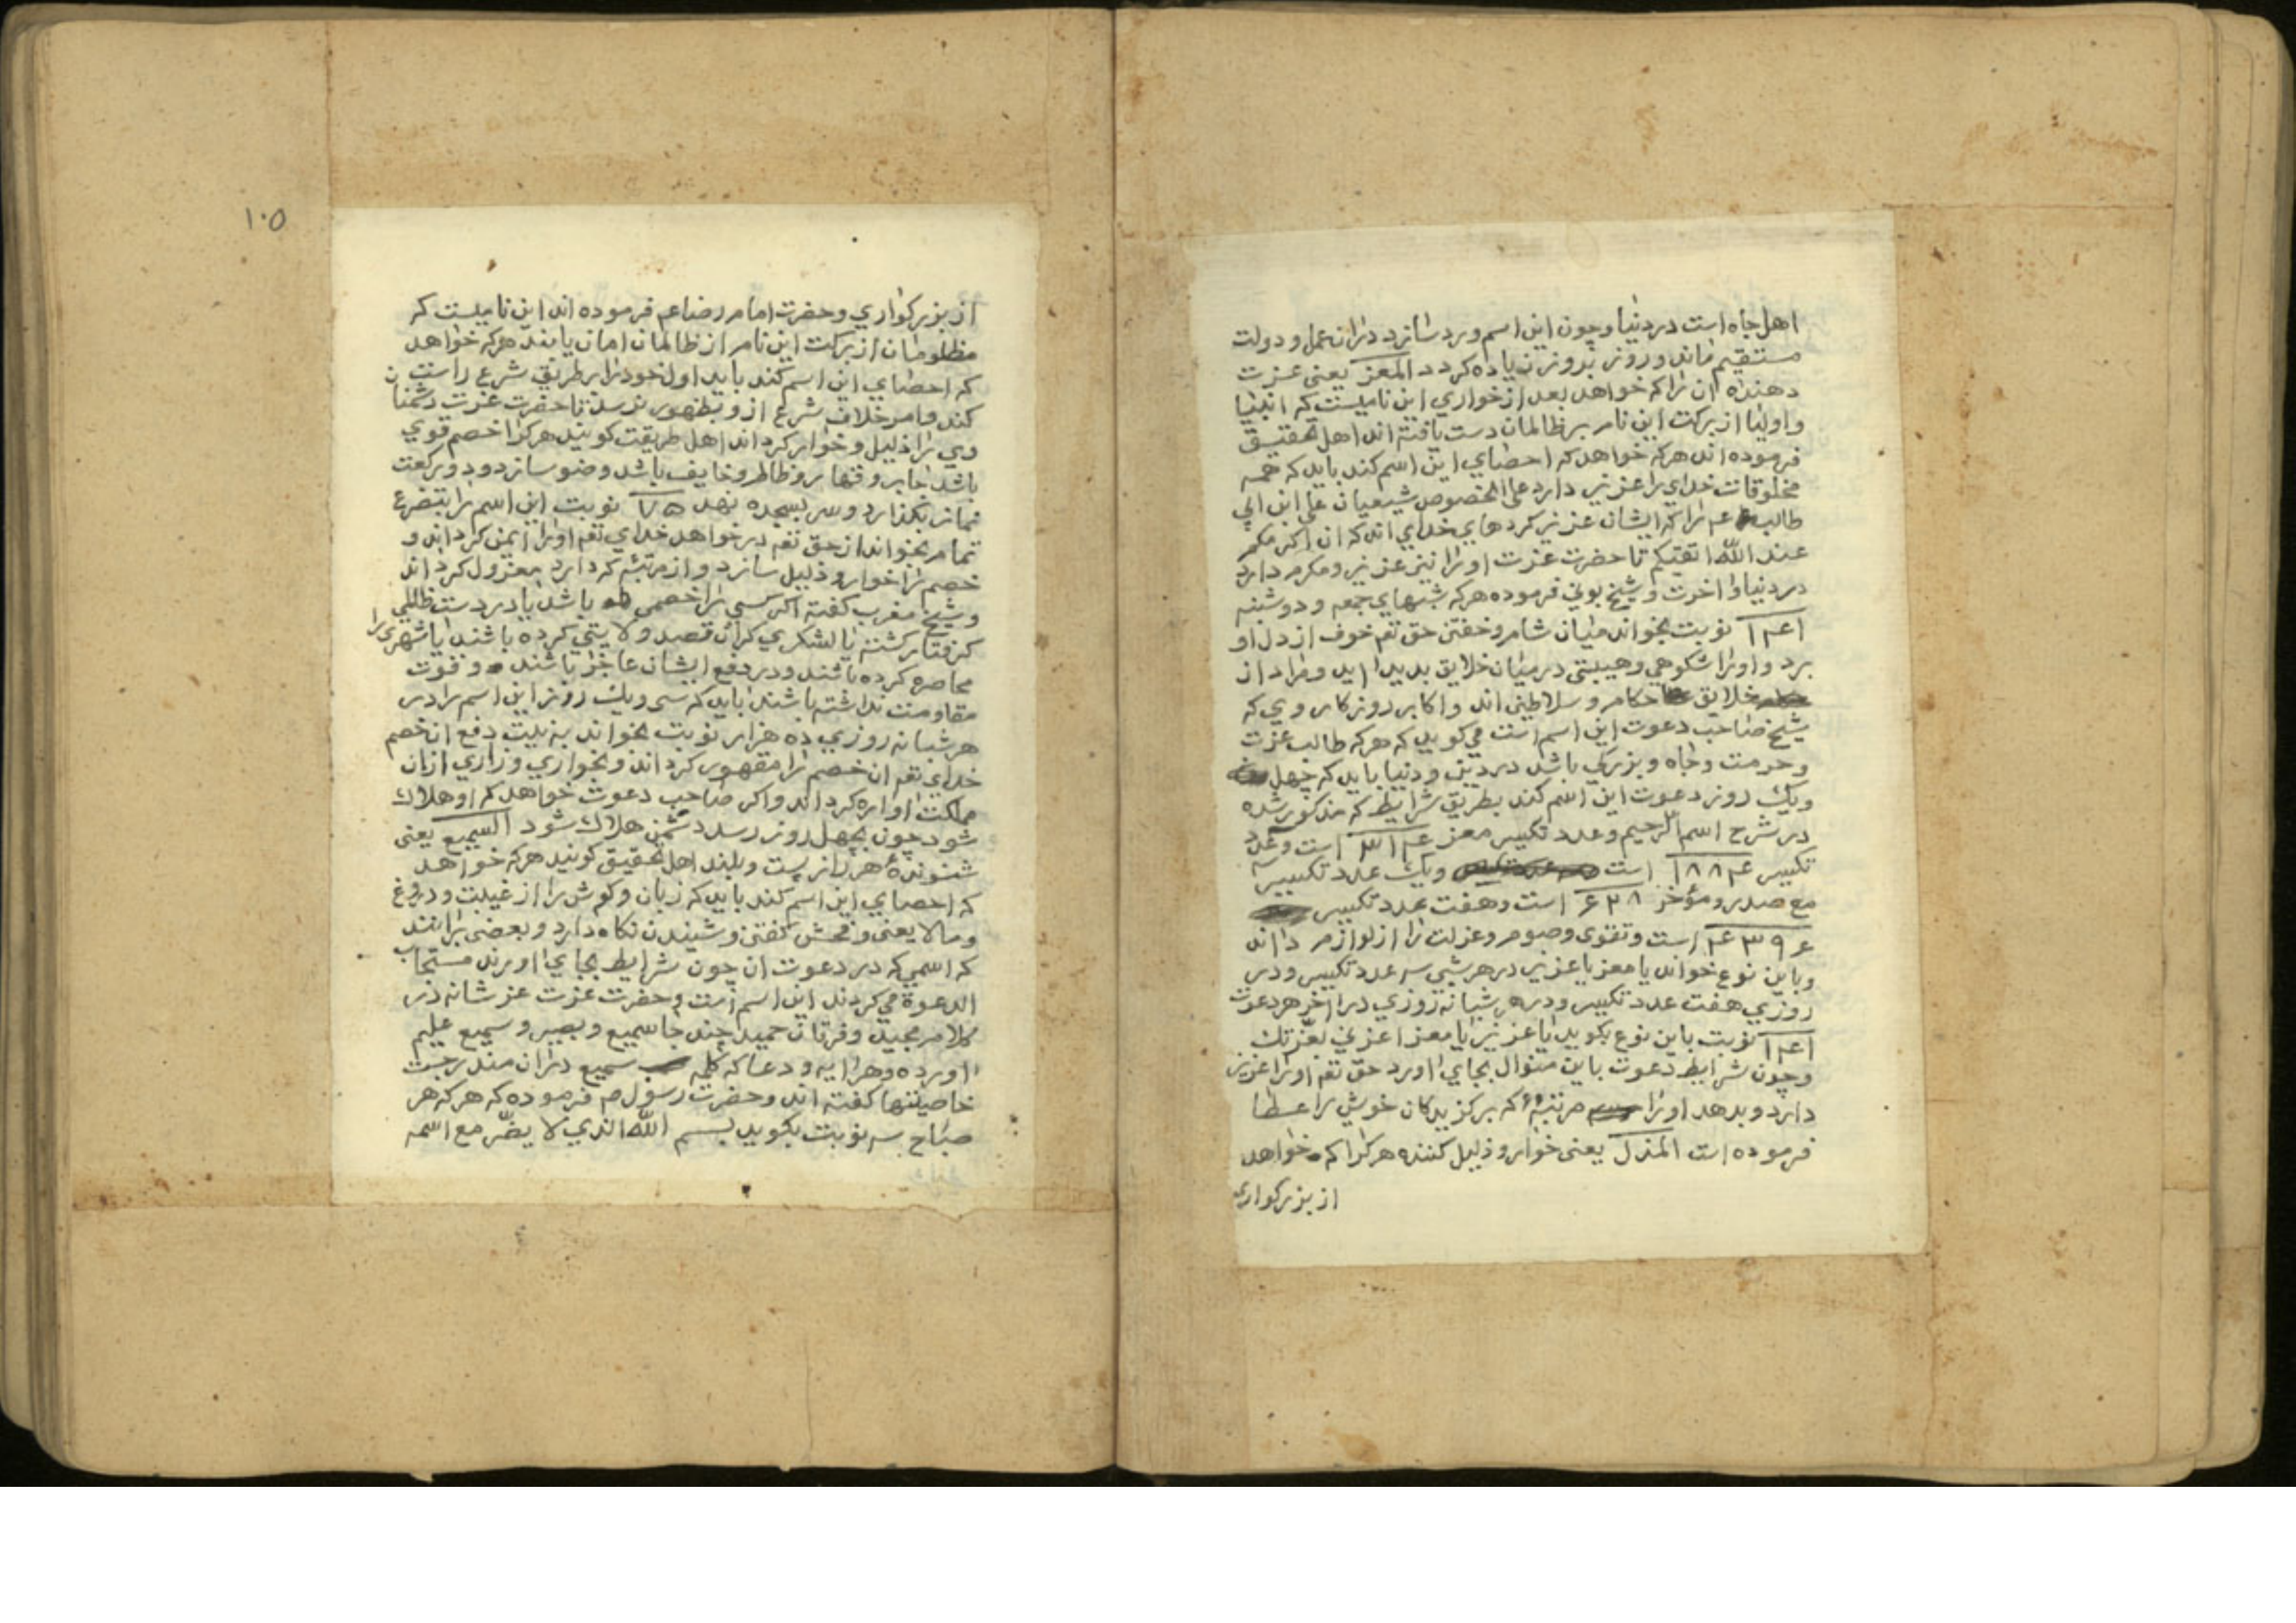 اهل جاه است در دنیا و چون این اسم ورد سازد دران عمل و دولت
مستقیم ماند و روز بروز زیاده کردد المعز یعنی عزت
دهنده ان را که خواهد بعد از خواری این نامیست که انبیا
و اولیا از برکت این نام بر ظالمان دست یافته اند اهل تحقیق
فرموده اند هرکه خواهد که احصای این اسم کند باید که همه
مخلوقات خدای را عزیز دارد علی الخصوص شیعیان علی ابن ابی
طالب عم را که ایشان عزیز کردهای خدای اند که ان اکرمکم
عند الله اتقیکم تا حضرت عزت او را نیز عزیز و مکرم دارد
در دنیا و اخرت و شیخ بونی فرموده هرکه شبهای جمعه و دوشنبه
۱۴۱ نوبت بخواند میان شام و خفتن حق تعم خوف از دل او
برد و او را شکوهی و هیبتی در میان خلایق بدید اید و مراد از
خلایق حکام و سلاطین اند و اکابر روزکار و وی که
شیخ صاحب دعوت این اسم است می کوید که هرکه طالب عزت
و حرمت و جاه و بزرکی باشد در دین و دنیا باید که چهل
ویک روز دعوت این اسم کند بطریق شرایط که مذکور شده
در شرح اسم الرحیم و عدد تکبیر معز است و عدد
تکبیر ۱۸۸۴ است ویک عدد تکبیر
مع صدر و مؤخر ۶۲۸ است و هفت عدد تکبیر
۴۳۹۶ است و تقوی و صوم و عزلت را از لوازم داند
و باین نوع خواند یا معز یا عزیز در هر شبی سه عدد تکبیر و در
روزی هفت عدد تکبیر و در هر شبانه روزی در اخر هر دعوت
۱۴۱ نوبت باین نوع بکوید یا عزیز یا معز اعزنی بعزتک
و چون شرایط دعوت باین منوال بجای اورد حق تعم او را عزیز
دارد و بدهد او را مرتبهٔ که برکزیدکان خویش را عطا
فرموده است المذل یعنی خوار و ذلیل کننده هرکرا که خواهد
از بزرکواری
۱۰۵
از بزرکواری و حضرت امام رضا عم فرموده اند این نامیست که
مظلومان از برکت این نام از ظالمان امان یابند هرکه خواهد
که احصای این اسم کند باید اول خود را بر طریق شرع راست
کند و امر خلاف شرع از و بظهور نرسد تا حضرت عزت دشمنان
وی را ذلیل و خوار کرداند اهل طریقت کویند هرکرا خصم قوی
باشد جابر و قهار و ظالم و خایف باشد وضو سازد و دو رکعت
نماز بکذارد و سر بسجده نهد ۷۵ نوبت این اسم را بتضرع
تمام بخواند از حق تعم در خواهد خدای تعم او را ایمن کرداند و
خصم را خوار و ذلیل سازد و از مرتبهٔ که دارد معزول کرداند
و شیخ مغرب کفته اکر کسی را خصمی باشد یا در دست ظالمی
کرفتار کشته یا لشکری کران قصد ولایتی کرده باشند یا شهری را
محاصره کرده باشند و در دفع ایشان عاجز باشند و قوت
مقاومت نداشته باشند باید که سی ویک روز این اسم را در
هر شبانه روزی ده هزار نوبت بخواند به نیت دفع ان خصم
خدای تعم ان خصم را مقهور کرداند و بخواری و زاری از ان
مملکت اواره کرداند و اکر صاحب دعوت خواهد که او هلاک
شود چون بچهل روز رسد دشمن هلاک شود السمیع یعنی
شنوندهٔ هر راز پست و بلند اهل تحقیق کویند هرکه خواهد
که احصای این اسم کند باید که زبان و کوش را از غیبت و دروغ
و مالا یعنی و فحش کفتن و شنیدن نکاه دارد و بعضی برانند
که اسمی که در دعوت ان چون شرایط بجای اورند مستجاب
الدعوة می کردند این اسم است و حضرت عزت عز شانه در
کلام مجید و فرقان حمید چند جا سمیع و بصیر و سمیع علیم
اورده و هر ایه و دعا که کلمه سمیع در ان مندرجست
خاصیتها کفته اند و حضرت رسول ص فرموده که هرکه هر
صباح سه نوبت بکوید بسم الله الذی لا یضر مع اسمه